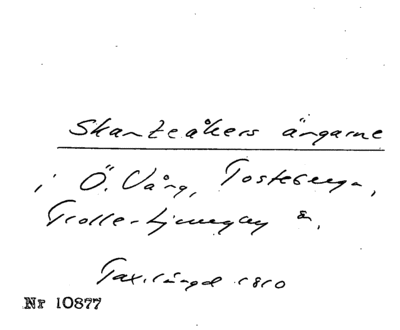 Skanzeåkers ängarne
i Ö. Vång, Tosteberga,
Trolle-Ljungby s.
Tax.längd 1810
Nr 10877